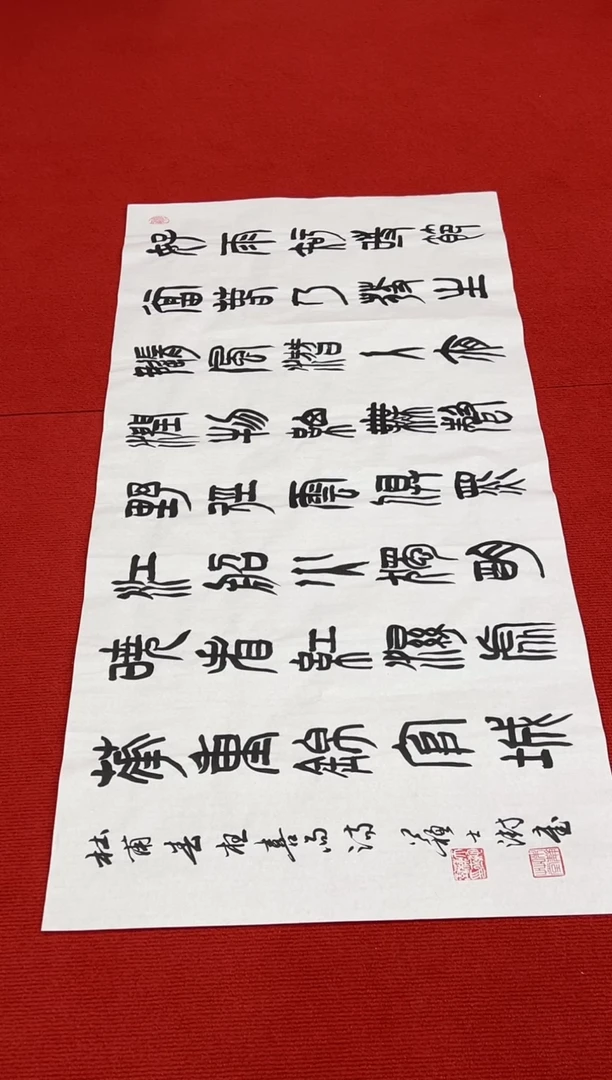 好雨知時節
當春乃發生
隨風潛入夜
潤物細無聲
野徑雲俱黑
江船火獨明
曉看紅濕處
花重錦官城
杜甫春夜喜雨詩 蘇士澍書